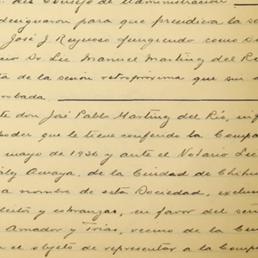 del Consejo de Administración
designaron para que presidiera la se
José J. Reynoso fungiendo como S
Lic. Manuel Martínez del R
ta de la sesión retropróxima que sin
robada.
te don José Pablo Martínez del Río, inf
poder que le tiene conferido la Compa
mayo de 1936 y ante el Notario Lic
Amaya, de la Ciudad de Chihu
a nombre de esta Sociedad, exclu
pleitos y cobranzas, en favor del señ
Amador y Trías, vecino de la Ciu
el objeto de representar a la Compa